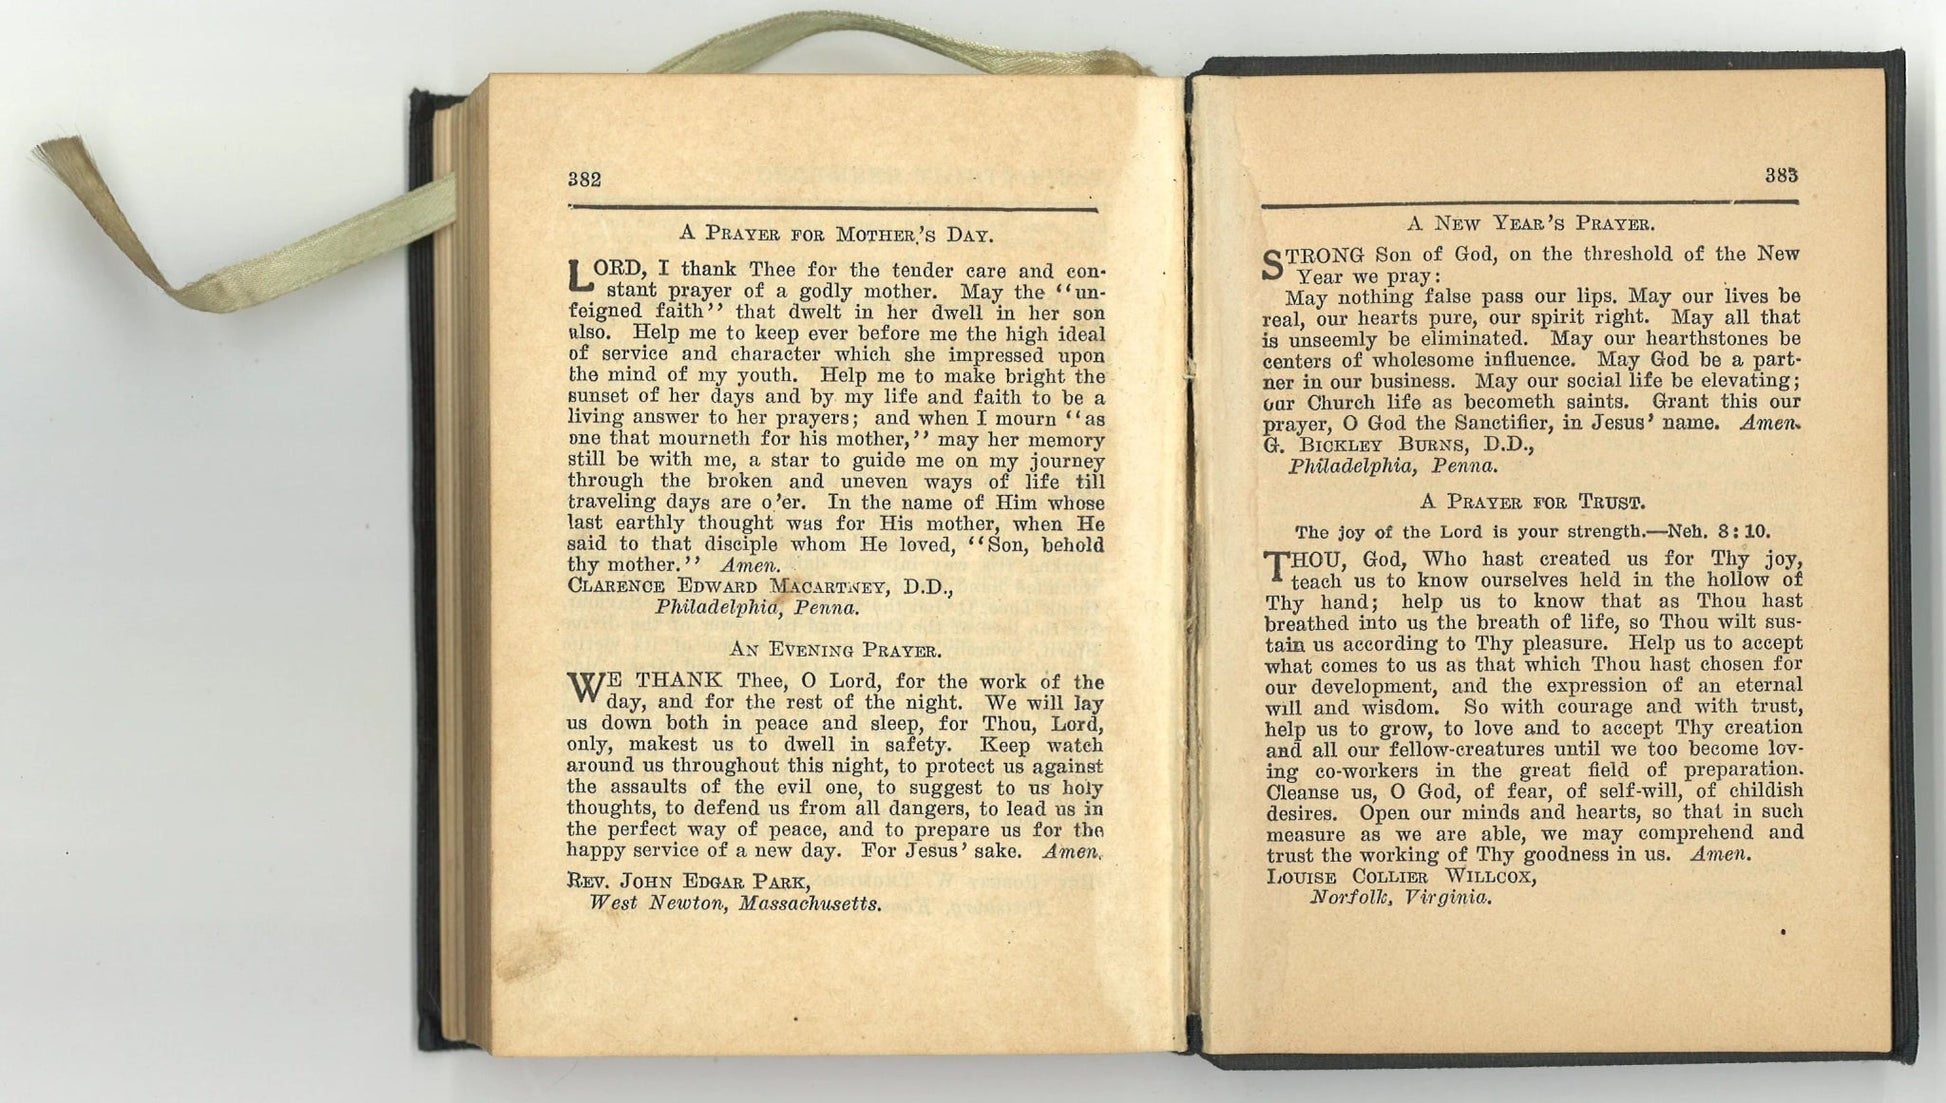 382
A PRAYER FOR MOTHER'S DAY.
LORD, I thank Thee for the tender care and con-
stant prayer of a godly mother. May the “un-
feigned faith” that dwelt in her dwell in her son
also. Help me to keep ever before me the high ideal
of service and character which she impressed upon
the mind of my youth. Help me to make bright the
sunset of her days and by my life and faith to be a
living answer to her prayers; and when I mourn “as
one that mourneth for his mother,” may her memory
still be with me, a star to guide me on my journey
through the broken and uneven ways of life till
traveling days are o'er. In the name of Him whose
last earthly thought was for His mother, when He
said to that disciple whom He loved, “Son, behold
thy mother.” Amen.
CLARENCE EDWARD MACARTNEY, D.D.,
Philadelphia, Penna.
AN EVENING PRAYER.
WE THANK Thee, O Lord, for the work of the
day, and for the rest of the night. We will lay
us down both in peace and sleep, for Thou, Lord,
only, makest us to dwell in safety. Keep watch
around us throughout this night, to protect us against
the assaults of the evil one, to suggest to us holy
thoughts, to defend us from all dangers, to lead us in
the perfect way of peace, and to prepare us for the
happy service of a new day. For Jesus' sake. Amen.
REV. JOHN EDGAR PARK,
West Newton, Massachusetts.
383
A NEW YEAR'S PRAYER.
STRONG Son of God, on the threshold of the New
Year we pray:
May nothing false pass our lips. May our lives be
real, our hearts pure, our spirit right. May all that
is unseemly be eliminated. May our hearthstones be
centers of wholesome influence. May God be a part-
ner in our business. May our social life be elevating;
our Church life as becometh saints. Grant this our
prayer, O God the Sanctifier, in Jesus' name. Amen.
G. BICKLEY BURNS, D.D.,
Philadelphia, Penna.
A PRAYER FOR TRUST.
The joy of the Lord is your strength.—Neh. 8:10.
THOU, God, Who hast created us for Thy joy,
teach us to know ourselves held in the hollow of
Thy hand; help us to know that as Thou hast
breathed into us the breath of life, so Thou wilt sus-
tain us according to Thy pleasure. Help us to accept
what comes to us as that which Thou hast chosen for
our development, and the expression of an eternal
will and wisdom. So with courage and with trust,
help us to grow, to love and to accept Thy creation
and all our fellow-creatures until we too become lov-
ing co-workers in the great field of preparation.
Cleanse us, O God, of fear, of self-will, of childish
desires. Open our minds and hearts, so that in such
measure as we are able, we may comprehend and
trust the working of Thy goodness in us. Amen.
LOUISE COLLIER WILLCOX,
Norfolk, Virginia.